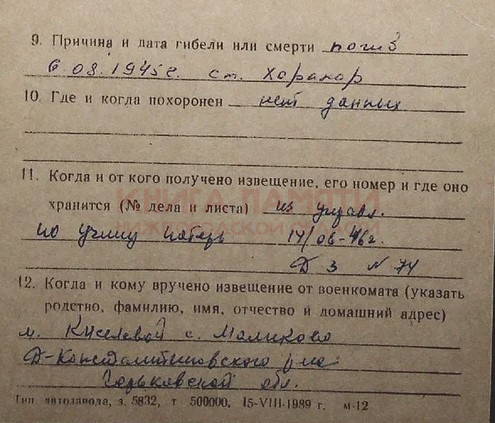 9. Причина и дата гибели или смерти погиб
в 08.1945г. ст. Хоранор
10. Где и когда похоронен нет данных
11. Когда и от кого получено извещение, его номер и где оно
хранится (№ дела и листа) из управл.
по учету потерь 14/06-46г.
Д 3 N 74
12. Когда и кому вручено извещение от военкомата (указать
родство, фамилию, имя, отчество и домашний адрес)
м. Киселевой с. Маликово
Д-Константиновского р-на
Горьковской обл.
Тип. автозавода, з. 5832, т 500000, 15-VIII-1989 г. м-12